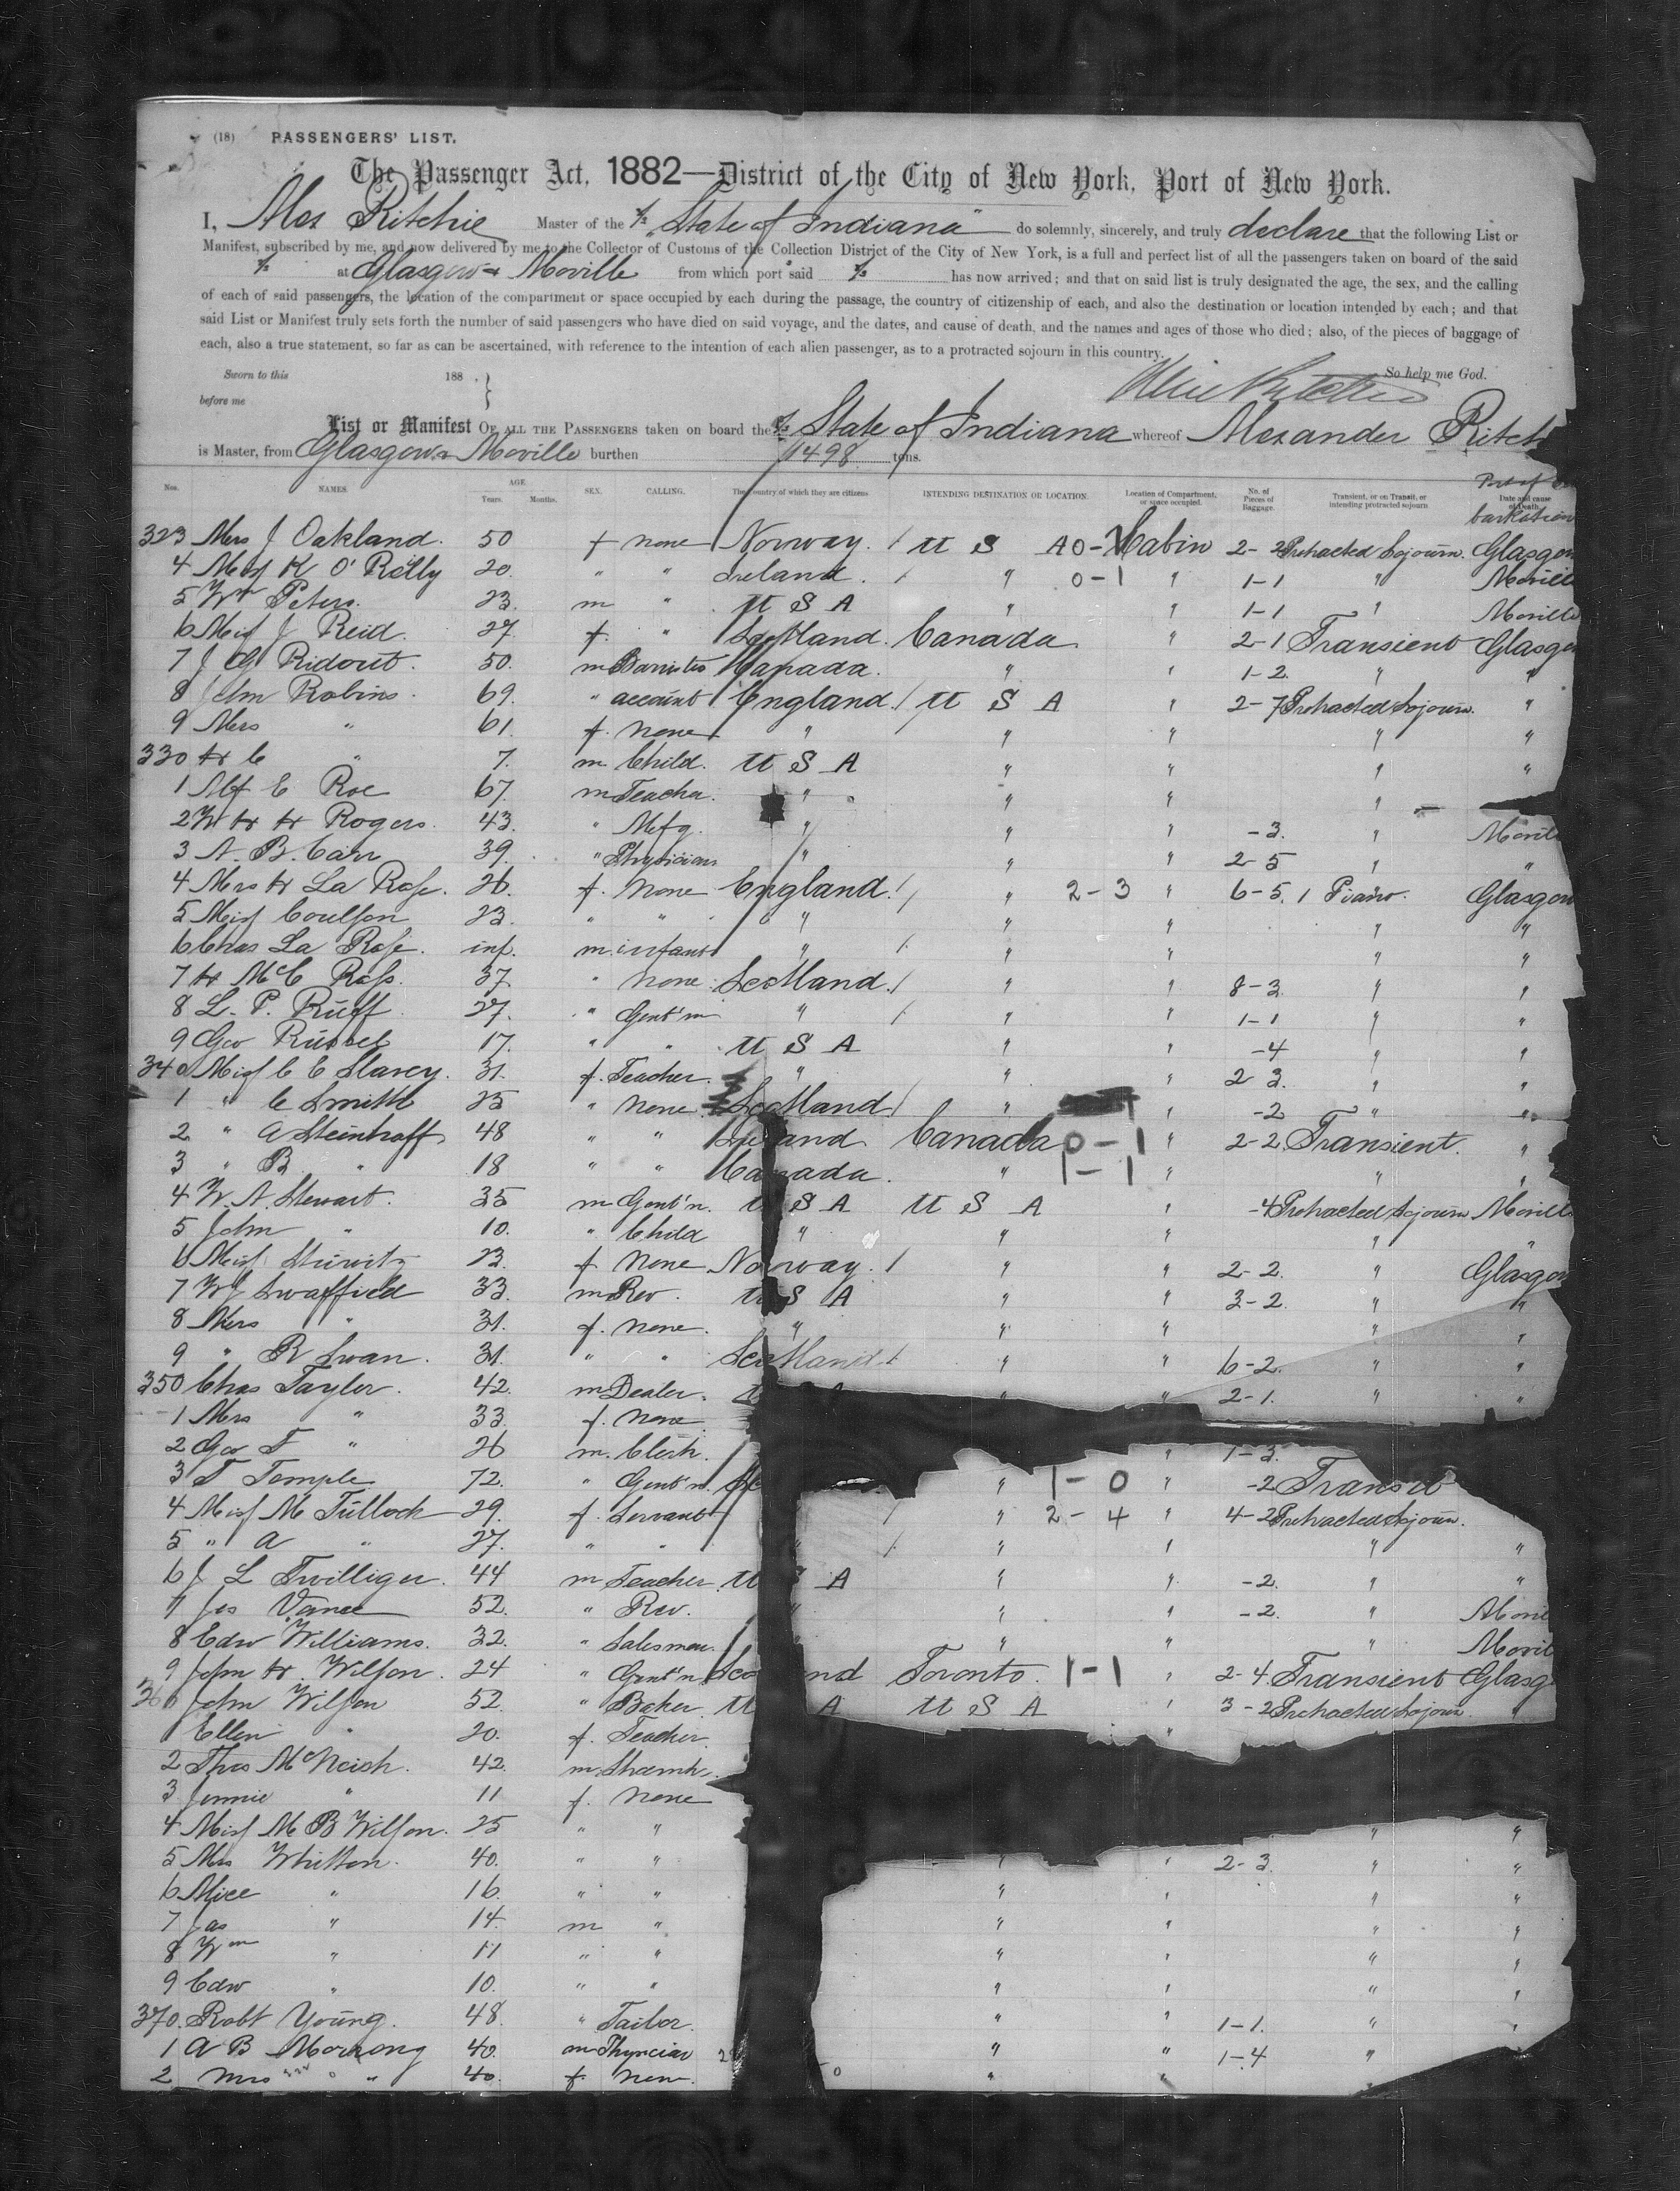 (18) PASSENGERS' LIST.
The Passenger Act, 1882—District of the City of New York, Port of New York.
I, Alex Ritchie Master of the S/s "State of Indiana" do solemnly, sincerely, and truly declare that the following List or
Manifest, subscribed by me, and now delivered by me to the Collector of Customs of the Collection District of the City of New York, is a full and perfect list of all the passengers taken on board of the said
S/s at Glasgow & Moville from which port said S/s has now arrived; and that on said list is truly designated the age, the sex, and the calling
of each of said passengers, the location of the compartment or space occupied by each during the passage, the country of citizenship of each, and also the destination or location intended by each; and that
said List or Manifest truly sets forth the number of said passengers who have died on said voyage, and the dates, and cause of death, and the names and ages of those who died; also, of the pieces of baggage of
each, also a true statement, so far as can be ascertained, with reference to the intention of each alien passenger, as to a protracted sojourn in this country.
So help me God.
Sworn to this 188 .
before me
List or Manifest OF ALL THE PASSENGERS taken on board the S/s State of Indiana whereof Alexander Ritch
is Master, from Glasgow & Moville burthen 1498 tons.
Nos. NAMES. AGE. Years. Months. SEX. CALLING. The country of which they are citizens INTENDING DESTINATION OR LOCATION. Location of Compartment, or space occupied. No. of Pieces of Baggage. Transient, or on Transit, or intending protracted sojourn Date and cause of Death. Port of barkation
323 Mrs J Oakland. 50 f none Norway. / U S A 0-1 Cabin 2-2 Protracted Sojourn. Glasgow
4 Miss K O'Reilly 20. " " Ireland. / " 0-1 " 1-1 " Moville
5 Wm Peters. 23. m " U S A " " 1-1 " Moville
6 Miss J Reid. 27. f. " Scotland. Canada " 2-1 Transient Glasgow
7 J G Ridout. 50. m Barrister Canada. " " 1-2. " "
8 John Robins. 69. " account England. / U S A " 2-7 Protracted Sojourn. "
9 Mrs " 61. f. none " " " " "
330 H C " 7. m Child. U S A " " " "
1 Alf E Roe 67. m Teacher. " " " "
2 W H H Rogers. 43. " Mcfg. " " " -3. " Movill
3 A. B. Carr 39. " Physician " " " 2-5 " "
4 Mrs H La Rose. 26. f. none England. / " 2-3 " 6-5. 1 Piano. Glasgow
5 Miss Coulson 23. " " " " " " "
6 Chas La Rose. inf. m infant " / " " " "
7 H McC Ross. 37. " none Scotland. / " " 8-3 " "
8 L. P. Ruff 27. " Gent'm " / " " 1-1 " "
9 Geo Russel 17. " " U S A " " -4 " "
340 Miss C C Slavey. 31. f. Teacher. " " " 2 3. " "
1 " C Smith 25 " none. Scotland / " " -2. " "
2 " A Steinhoff 48 " " Ireland Canada 0-1 " 2-2 Transient. "
3 " B " 18 " " Canada. " 1-1 " " "
4 W. A. Stewart. 35 m Gent'n. U S A U S A " -4 Protracted Sojourn Movill
5 John " 10. " Child " " " " "
6 Miss 23. f none Norway. / " " 2-2. " Glasgow
7 W J Swaffield 33. m Rev. U S A " " 3-2. " "
8 Mrs " 31. f. none. " " " " "
9 " R Swan. 31. " " Scotland / " " 6-2. " "
350 Chas Taylor. 42. m Dealer. " " 2-1. " "
1 Mrs " 33. f. none
2 Geo T " 26 m. Clerk. " 1-3.
3 T Temple 72. " Gent'n. " 1-0 " -2 Transit
4 Miss M Tullock 29. f. Servant / " 2-4 " 4-2 Protracted Sojourn.
5 " A " 27. " " / " " " "
6 J L Twilliger. 44 m Teacher. U A " " -2. " "
7 Jas Vance 52. " Rev. " " -2. " Movil
8 Edw Williams. 32. " Salesman. " " " Movil
9 John H. Wilson. 24 " Gent'n Sco nd Toronto. 1-1 " 2-4. Transient Glasg
360 John Wilson 52 " Baker. U A U S A " 3-2 Protracted Sojourn. "
1 Ellen " 20. f. Teacher. "
2 Thos McNeish. 42. m
3 Jennie " 11 f. none
4 Miss M B Wilson. 25 " " " "
5 Mrs Whitton. 40. " " " " 2-3. " "
6 Alice " 16. " " " " " "
7 Jas " 14. m " " " " "
8 Wm " 11 " " " " " "
9 Edw " 10. " " " " " "
370. Robt Young. 48. " Tailor. " " 1-1. " "
1 A B 40. m " " 1-4 "
2 Mrs " 40. f. " "